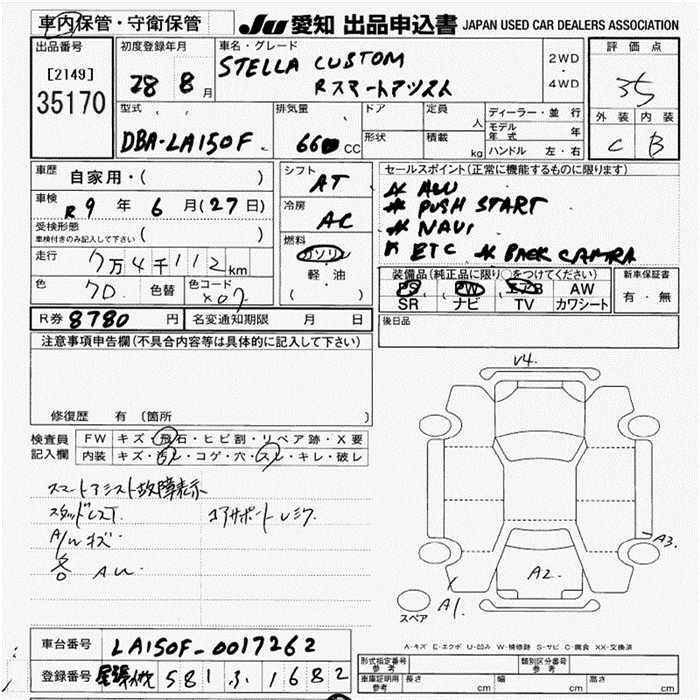 車内保管・守衛保管
JU 愛知 出品申込書 JAPAN USED CAR DEALERS ASSOCIATION
出品番号
[2149]
35170
初度登録年月
28 8月
車名・グレード
STELLA CUSTOM
R スマートアシスト
2WD
・
4WD
評価点
3.5
外装 内装
C B
型式
DBA-LA150F
排気量
660 CC
ドア
形状
定員 人
積載 kg
ディーラー・並行
モデル年式 年
ハンドル 左・右
車歴 自家用・( )
車検 R9年 6月(27日)
受検形態
車検付きのみ記入して下さい ( )
走行 7万4千112km
色 クロ 色替 色コード X07
シフト AT
冷房 AC
燃料
ガソリン
軽・油
( )
セールスポイント(正常に機能するものに限ります)
* PUSH START
* NAVI
* ETC * BACK CAMERA
装備品(純正品に限り○をつけてください)
PS PW エアB AW
SR ナビ TV カワシート
新車保証書
有・無
R券 8780円 名変通知期限 月 日
後日品
注意事項申告欄(不具合内容等は具体的に記入して下さい)
修復歴 有(箇所 )
検査員記入欄
FW キズ・飛石・ヒビ割・リペア跡・X要
内装 キズ・汚レ・コゲ・穴・スレ・キレ・破レ
スマートアシスト故障表示
スタッドレスT. コアサポートUミク
A/W キズ・
V4.
A3.
A2.
A1.
スペア
A-キズ E-エクボ U-凹み W-補修跡 S-サビ C-腐食 XX-交換済
車台番号 LA150F-0017262
登録番号 尾張小牧 581 ふ 1682
形式指定番号 参考
類別区分番号 参考
車庫証明用 参考 長さ cm 幅 cm 高さ cm